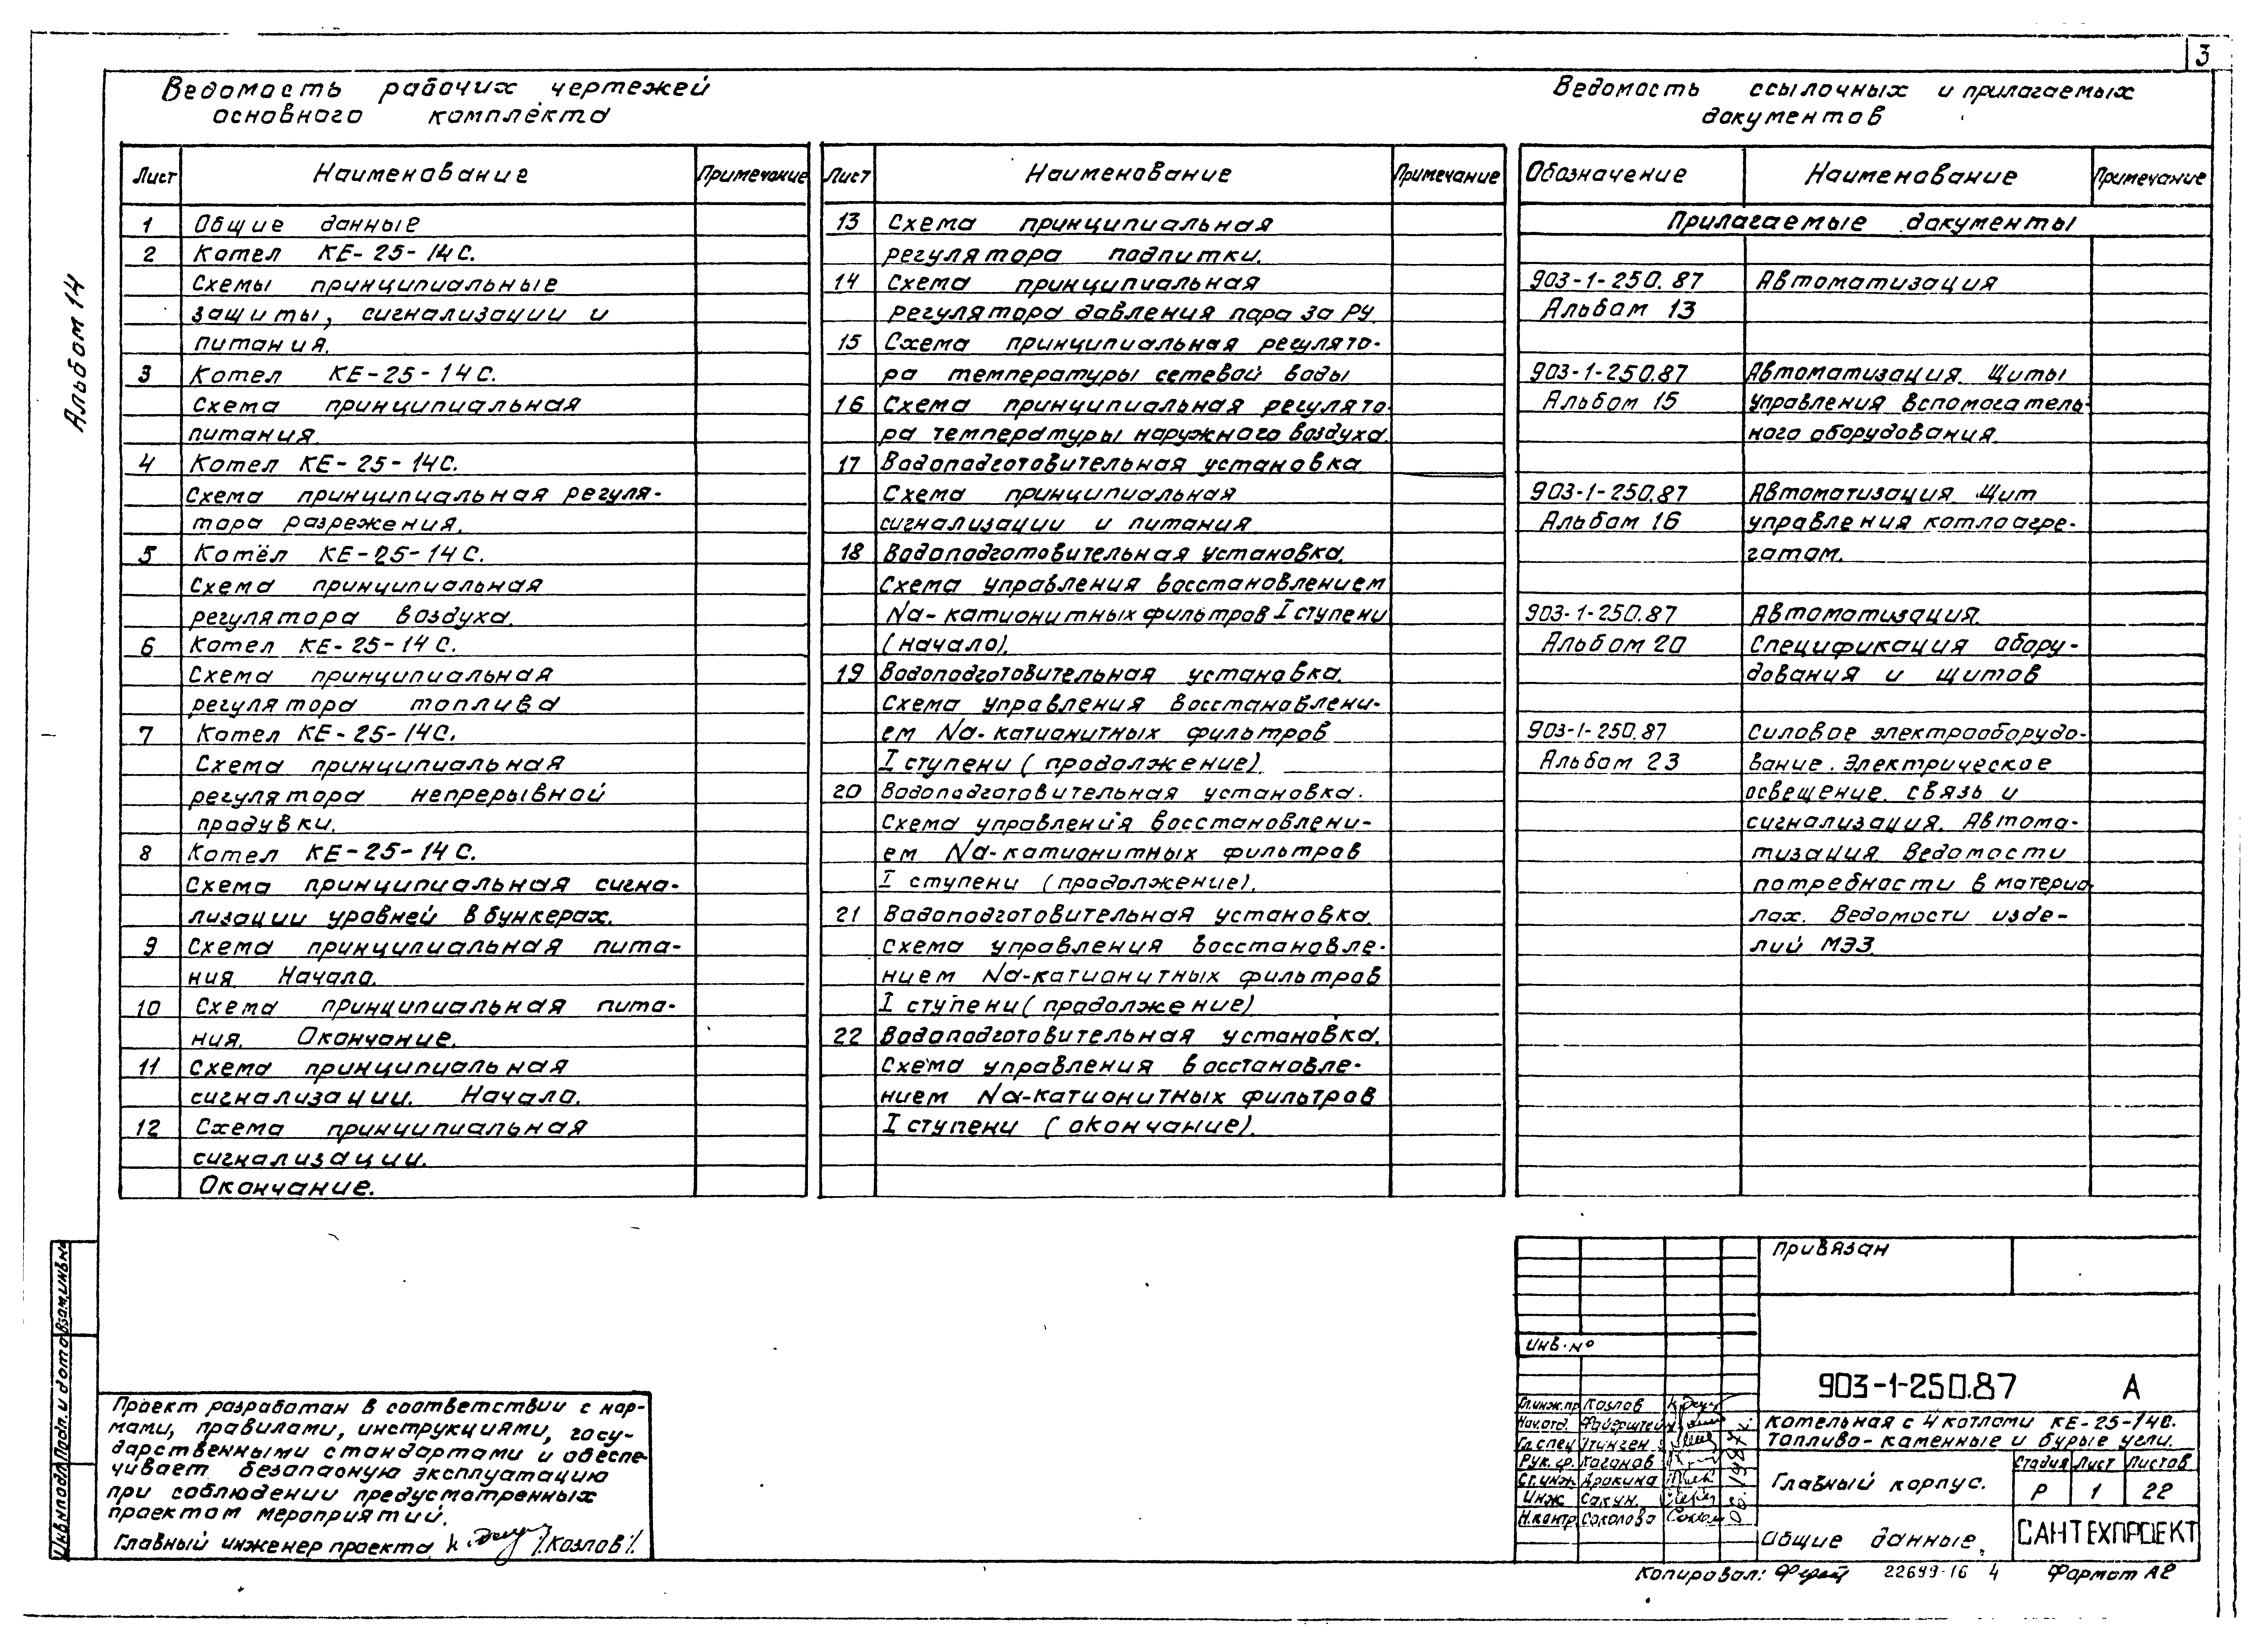 3
Альбом 14
Ведомость рабочих чертежей
основного комплекта
Лист Наименование Примечание
1 Общие данные
2 Котел КЕ-25-14С.
Схемы принципиальные
защиты, сигнализации и
питания.
3 Котел КЕ-25-14С.
Схема принципиальная
питания.
4 Котел КЕ-25-14С.
Схема принципиальная регуля-
тора разрежения.
5 Котёл КЕ-25-14С.
Схема принципиальная
регулятора воздуха.
6 Котел КЕ-25-14С.
Схема принципиальная
регулятора топлива
7 Котел КЕ-25-14С.
Схема принципиальная
регулятора непрерывной
продувки.
8 Котел КЕ-25-14С.
Схема принципиальная сигна-
лизации уровней в бункерах.
9 Схема принципиальная пита-
ния. Начало.
10 Схема принципиальная пита-
ния. Окончание.
11 Схема принципиальная
сигнализации. Начало.
12 Схема принципиальная
сигнализации.
Окончание.
Лист Наименование Примечание
13 Схема принципиальная
регулятора подпитки.
14 Схема принципиальная
регулятора давления пара за РУ.
15 Схема принципиальная регулято-
ра температуры сетевой воды
16 Схема принципиальная регулято-
ра температуры наружного воздуха.
17 Водоподготовительная установка
Схема принципиальная
сигнализации и питания
18 Водоподготовительная установка.
Схема управления восстановлением
Na-катионитных фильтров I ступени
(начало).
19 Водоподготовительная установка.
Схема управления восстановлени-
ем Na-катионитных фильтров
I ступени (продолжение)
20 Водоподготовительная установка.
Схема управления восстановлени-
ем Na-катионитных фильтров
I ступени (продолжение).
21 Водоподготовительная установка.
Схема управления восстановле-
нием Na-катионитных фильтров
I ступени (продолжение)
22 Водоподготовительная установка.
Схема управления восстановле-
нием Na-катионитных фильтров
I ступени (окончание).
Ведомость ссылочных и прилагаемых
документов
Обозначение Наименование Примечание
Прилагаемые документы
903-1-250.87 Автоматизация
Альбом 13
903-1-250.87 Автоматизация. Щиты
Альбом 15 управления вспомогатель-
ного оборудования.
903-1-250.87 Автоматизация. Щит
Альбом 16 управления котлоагре-
гатом.
903-1-250.87 Автоматизация.
Альбом 20 Спецификация обору-
дования и щитов
903-1-250.87 Силовое электрооборудо-
Альбом 23 вание. Электрическое
освещение. Связь и
сигнализация. Автома-
тизация. Ведомости
потребности в материа
лах. Ведомости изде-
лий МЭЗ.
Инв.№подл. Подп. и дата Взам.инв.№
Проект разработан в соответствии с нор-
мами, правилами, инструкциями, госу-
дарственными стандартами и обеспе-
чивает безопасную эксплуатацию
при соблюдении предусмотренных
проектом мероприятий.
Главный инженер проекта /Козлов/.
Привязан
Инв.№
903-1-250.87 А
Гл.инж.пр Козлов
Нач.отд. Файерштейн
Гл.спец Этинген
Рук.гр. Коганов
Ст.инж. Дракина
Инж Сакун.
Н.контр Соколова
Котельная с 4 котлами КЕ-25-14С.
Топливо-каменные и бурые угли.
Главный корпус.
Стадия Лист Листов
Р 1 22
Общие данные.
САНТЕХПРОЕКТ
Копировал: 22699-16 4 Формат А2